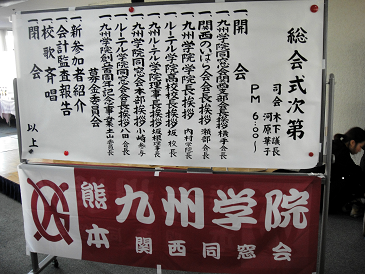 総会式次第
司会 木下議長
河原華子
PM 6:00〜
一、開会
一、九州学院同窓会関西支部会長挨拶
一、関西のいばら会会長挨拶
一、九州学院学院長挨拶 内村学院長
一、ルーテル学院高校校長挨拶
一、ルーテル学院理事長挨拶
一、九州学院同窓会本部挨拶
一、ルーテル学院同窓会会長挨拶 八田会長
一、九州学院創立百周年記念事業
募金委員会
一、新参加者紹介
一、会計監査報告
一、校歌斉唱
一、閉会
以上
熊本
九州学院
関西同窓会